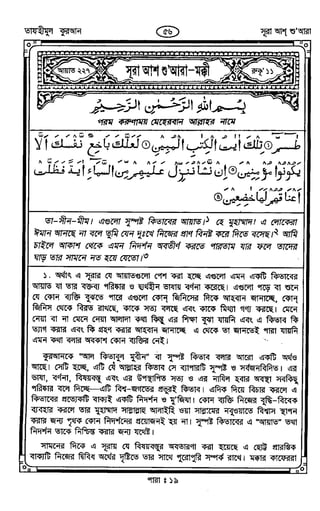 তাফহীমুল কুরআন
৫৬
সূরা আশ্ শু'আরা
আয়াত ২২৭
সূরা আশ শু'আরা-মক্কী
রুকু' ১১
بِسْمِ اللّٰهِ الرَّحْمٰنِ الرَّحِيْمِ
পরম করুণাময় মেহেরবান আল্লাহর নামে
طٰسٓمّٓ ۝ تِلْكَ اٰيٰتُ الْكِتٰبِ الْمُبِيْنِ ۝ لَعَلَّكَ بَاخِعٌ نَّفْسَكَ اَلَّا
يَكُوْنُوْا مُؤْمِنِيْنَ ۝ اِنْ نَّشَاْ نُنَزِّلْ عَلَيْهِمْ مِّنَ السَّمَآءِ اٰيَةً فَظَلَّتْ
اَعْنَاقُهُمْ لَهَا خٰضِعِيْنَ ۝
তা-সীন-মীম। এগুলো সুস্পষ্ট কিতাবের আয়াত।১ হে মুহাম্মাদ! এ লোকেরা
ঈমান আনছে না বলে তুমি যেন দুঃখে নিজের প্রাণ বিনষ্ট করে দিতে বসেছ।২ আমি
চাইলে আকাশ থেকে এমন নিদর্শন অবতীর্ণ করতে পারতাম যার ফলে তাদের
ঘাড় তার সামনে নত হয়ে যেতো।৩
১. অর্থাৎ এ সূরায় যে আয়াতগুলো পেশ করা হচ্ছে এগুলো এমন একটি কিতাবের
আয়াত যা তার বক্তব্য পরিষ্কার ও দ্ব্যর্থহীন ভাষায় বর্ণনা করেছে। এগুলো পড়ে বা শুনে
যে কোন ব্যক্তি বুঝতে পারে এগুলো কোন্ জিনিসের দিকে আহবান জানাচ্ছে, কোন্
জিনিস থেকে বিরত রাখছে, কাকে সত্য বলছে এবং কাকে মিথ্যা গণ্য করছে। মেনে
নেয়া বা না মেনে নেয়া আলাদা কথা কিন্তু এর শিক্ষা বুঝা যায়নি এবং এ কিতাব কি
ত্যাগ করার এবং কি গ্রহণ করার আহবান জানাচ্ছে এ থেকে তা জানতেই পারা যায়নি
এমন কথা বলার অবকাশ কোন ব্যক্তির নেই।
কুরআনকে "আল কিতাবুল মুবীন" বা সুস্পষ্ট কিতাব বলার আরো একটি অর্থও
আছে। সেটি হচ্ছে, এটি যে আল্লাহর কিতাব সে ব্যাপারটি সুস্পষ্ট ও সর্বজনবিদিত। এর
ভাষা, বর্ণনা, বিষয়বস্তু এবং এর উপস্থাপিত সত্য ও এর নাযিল হবার অবস্থা সবকিছু
পরিষ্কার বলে দিচ্ছে—এটি বিশ্ব-জগতের প্রভুরই কিতাব। এদিক দিয়ে বিচার করলে এ
কিতাবের প্রত্যেকটি বাক্যই একটি নিদর্শন ও মু'জিযা। কোন ব্যক্তি নিজের বুদ্ধি-বিবেক
ব্যবহার করলে তার মুহাম্মাদ সাল্লাল্লাহু আলাইহি ওয়া সাল্লামের নবুওয়াতে বিশ্বাস স্থাপন
করার জন্য পৃথক কোন নিদর্শনের প্রয়োজনই হয় না। সুস্পষ্ট কিতাবের এ "আয়াত" তথা
নিদর্শন তাকে নিশ্চিত করার জন্য যথেষ্ট।
সামনের দিকে এ সূরায় যে বিষয়বস্তুর অবতারণা করা হয়েছে এ ছোট্ট প্রারম্ভিক
বাক্যটি নিজের দ্বিবিধ অর্থের দৃষ্টিতে তার সাথে পুরোপুরি সম্পর্ক রাখে। মক্কার কাফেররা
পারা : ১৯